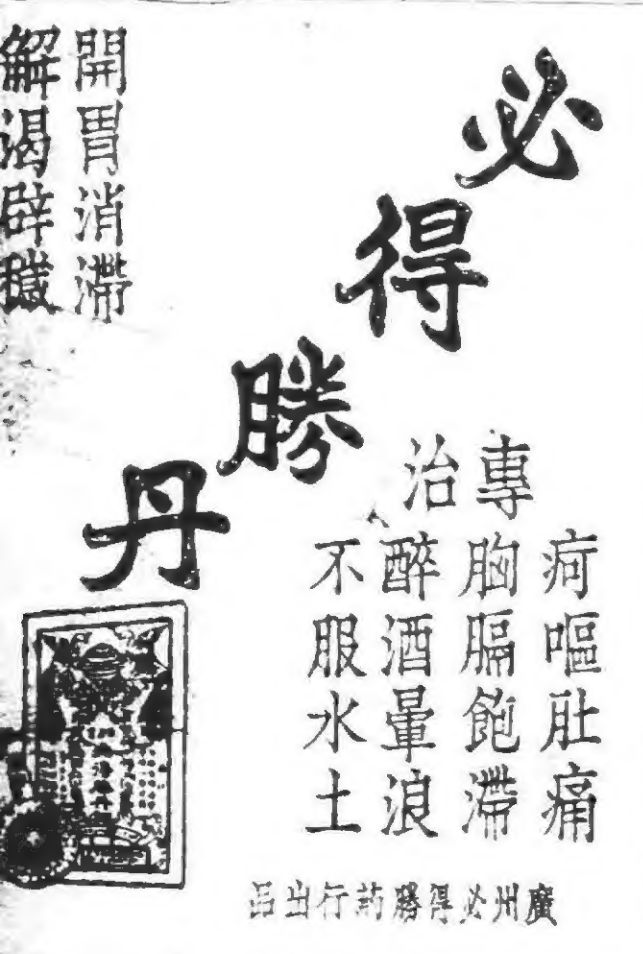 必得勝丹
開胃消滯
解渴辟穢
專治
疴嘔肚痛
胸膈飽滯
醉酒暈浪
不服水土
廣州必得勝葯行出品